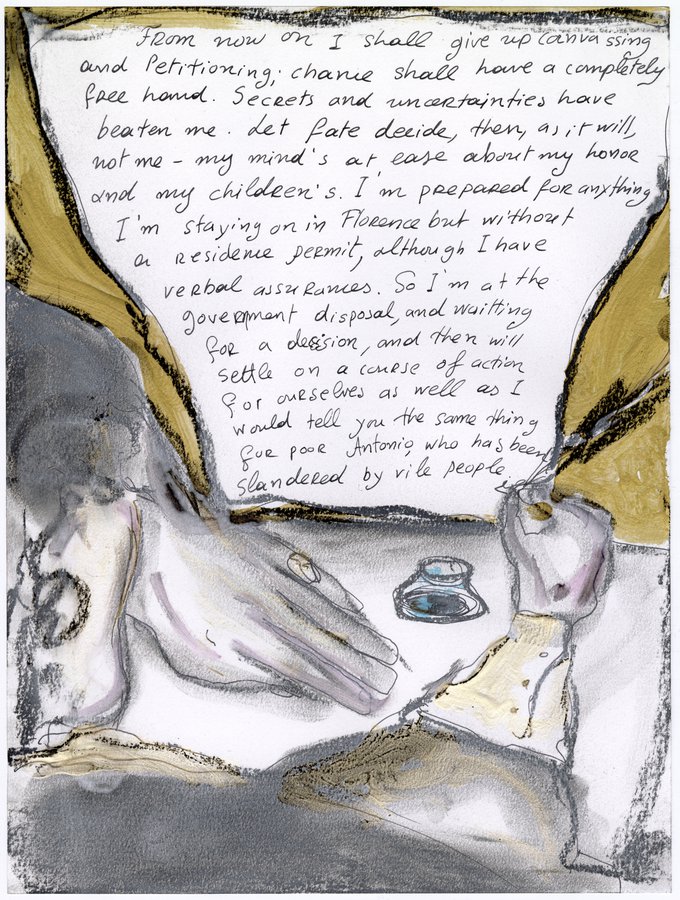 From now on I shall give up canvassing
and Petitioning; chance shall have a completely
free hand. Secrets and uncertainties have
beaten me. Let fate decide, then, as it will,
not me – my mind's at ease about my honor
and my children's. I'm prepared for anything
I'm staying on in Florence but without
a residence permit, although I have
verbal assurances. So I'm at the
government disposal, and waitting
for a decision, and then will
settle on a course of action
for ourselves as well as I
would tell you the same thing
fur poor Antonio, who has been
slandered by vile people